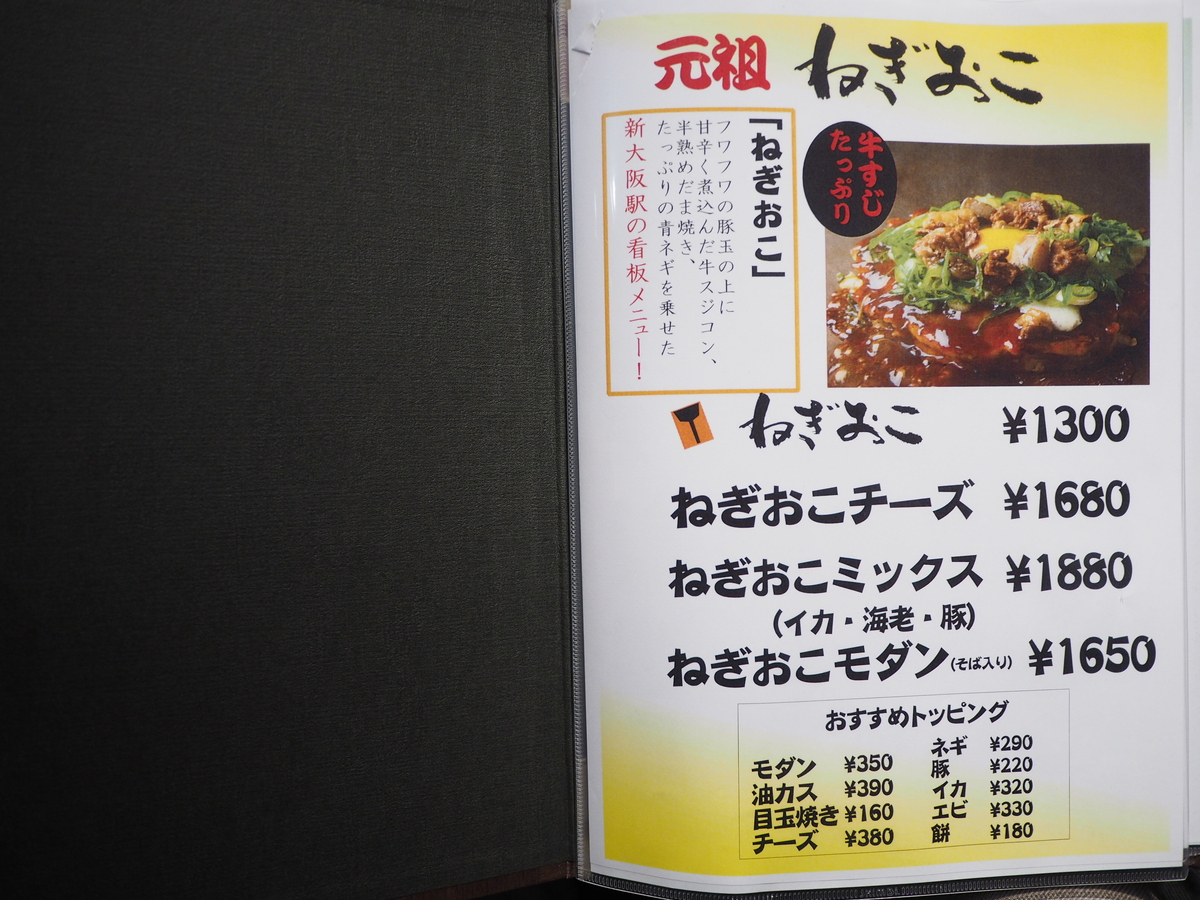 元祖 ねぎおこ
牛すじ
たっぷり
「ねぎおこ」
フワフワの豚玉の上に
甘辛く煮込んだ牛スジコン、
半熟めだま焼き、
たっぷりの青ネギを乗せた
新大阪駅の看板メニュー！
ねぎおこ ¥1300
ねぎおこチーズ ¥1680
ねぎおこミックス ¥1880
（イカ・海老・豚）
ねぎおこモダン（そば入り） ¥1650
おすすめトッピング
モダン ¥350
油カス ¥390
目玉焼き ¥160
チーズ ¥380
ネギ ¥290
豚 ¥220
イカ ¥320
エビ ¥330
餅 ¥180